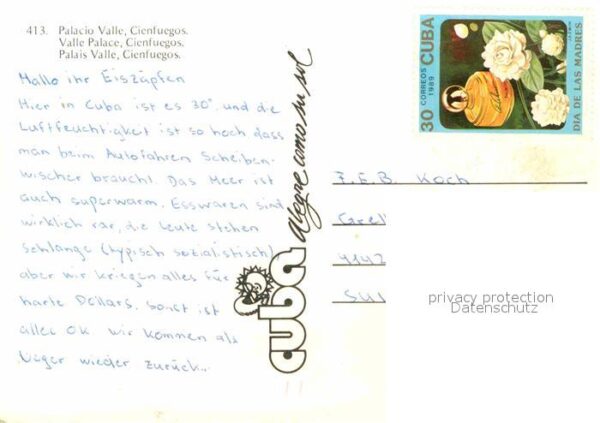 413. Palacio Valle, Cienfuegos.
Valle Palace, Cienfuegos.
Palais Valle, Cienfuegos.
Hallo ihr Eiszäpfen
Hier in Cuba ist es 30° und die
Luftfeuchtigkeit ist so hoch dass
man beim Autofahren Scheiben-
wischer braucht. Das Meer ist
auch superwarm. Esswaren sind
wirklich rar, die Leute stehen
Schlange (typisch sozialistisch)
aber wir kriegen alles für
harte Dollars. Sonst ist
alles OK wir kommen als
Neger wieder zurück...
cuba
Alegre como su sol
30 CORREOS 1989 CUBA
DIA DE LAS MADRES
F.E.B. Koch
4142
privacy protection
Datenschutz